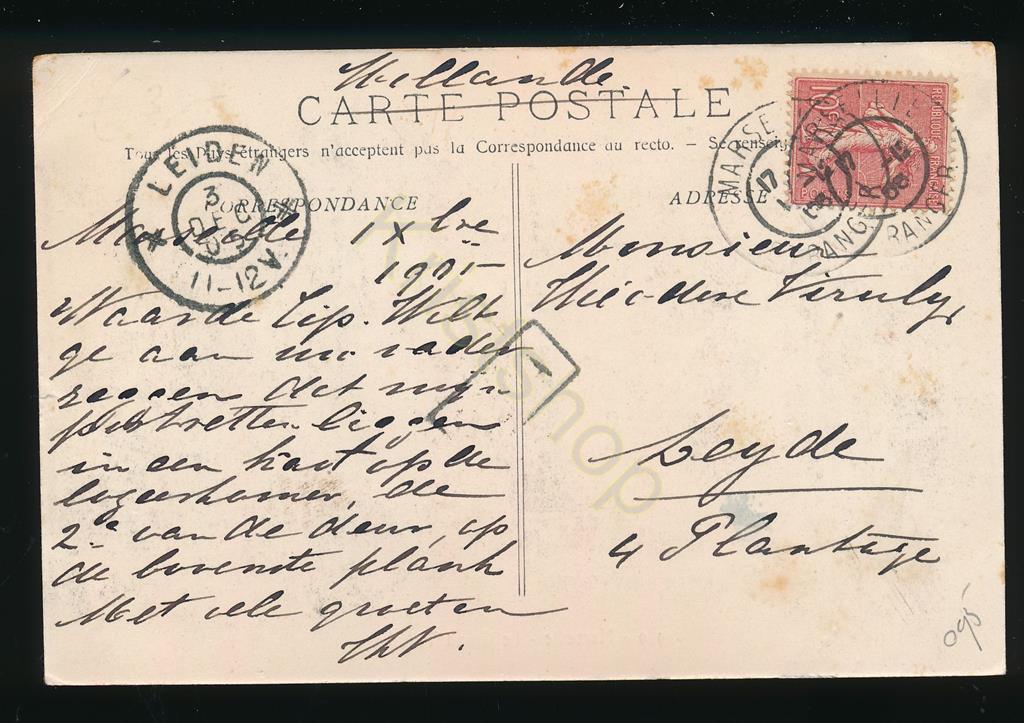 Hollande.
CARTE POSTALE
Tous les Pays étrangers n'acceptent pas la Correspondance au recto. — Se renseig
CORRESPONDANCE
ADRESSE
LEIDEN
3
DEC
11-12V.
MARSEILLE
RÉPUBLIQUE FRANÇAISE
10c
1 Xbre
1905
Waarde Lip. Wilt
ge aan uw vader
zeggen dat mijn
portretten liggen
in een kast op de
logeerkamer, de
2e van de deur, op
de bovenste plank
Met vele groeten
Monsieur
Théodore Viruly,
Leyde
4 Plantage
1
095